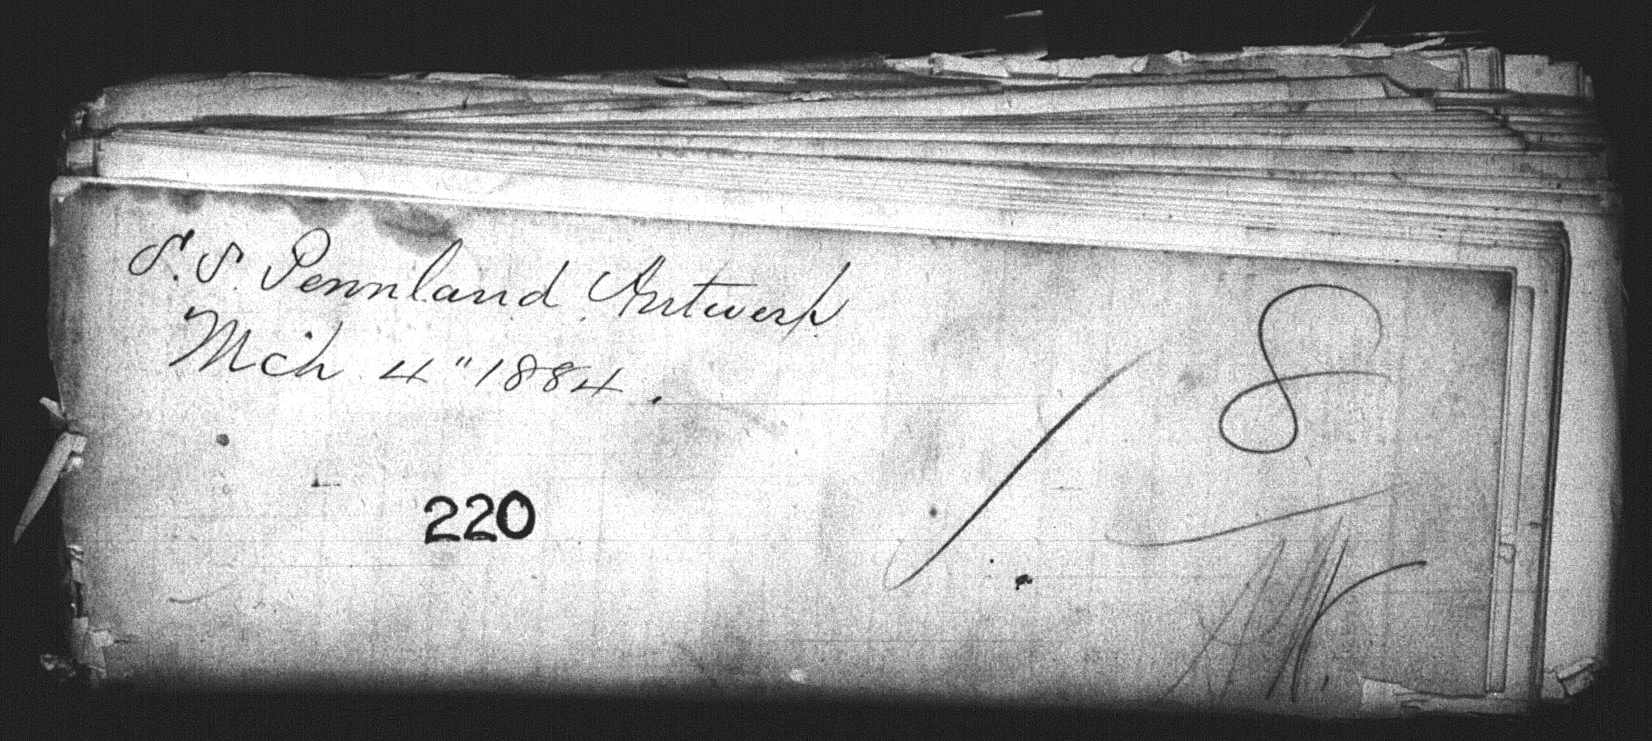 S.S. Pennland Antwerp
Mch 4" 1884.
8
220